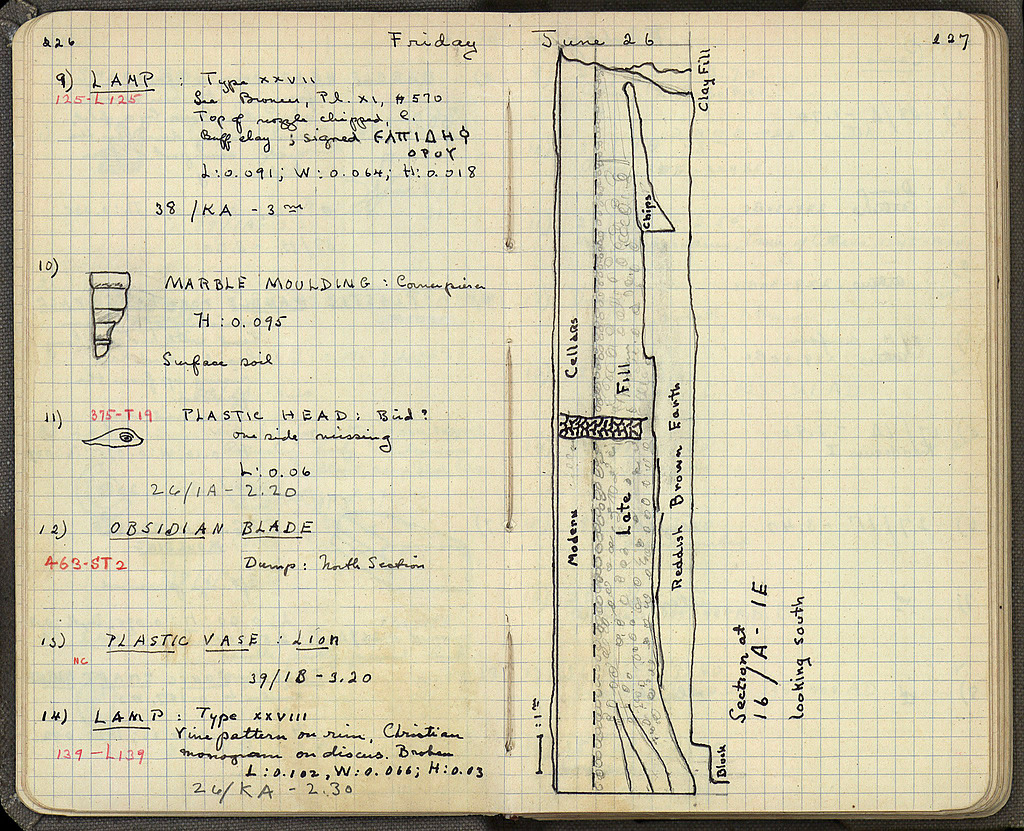 226
Friday
9) LAMP : Type XXVII
125-L125
See Broneer, Pl. XI, #570
Top of nozzle chipped,
Buff clay ; signed ЄΛΠΙΔΗΦ
ΟΡΟΥ
L: 0.091; W: 0.064; H: 0.018
38/KA - 3 m
10)
MARBLE MOULDING : Cornerpiece
H : 0.095
Surface soil
11) 375-T19 PLASTIC HEAD : Bird?
one side missing
L: 0.06
26/1A - 2.20
12) OBSIDIAN BLADE
463-ST2
Dump: North Section
13) PLASTIC VASE : Lion
NC
39/1B - 3.20
14) LAMP : Type XXVIII
Vine pattern on rim, Christian
139-L139
monogram on discus. Broken
L: 0.102, W: 0.066; H: 0.03
26/KA - 2.30
June 26
227
Clay Fill
Chips
Modern Cellars
Late Fill
Reddish Brown Earth
Section at
16/A - 1E
looking south
1 m
Block